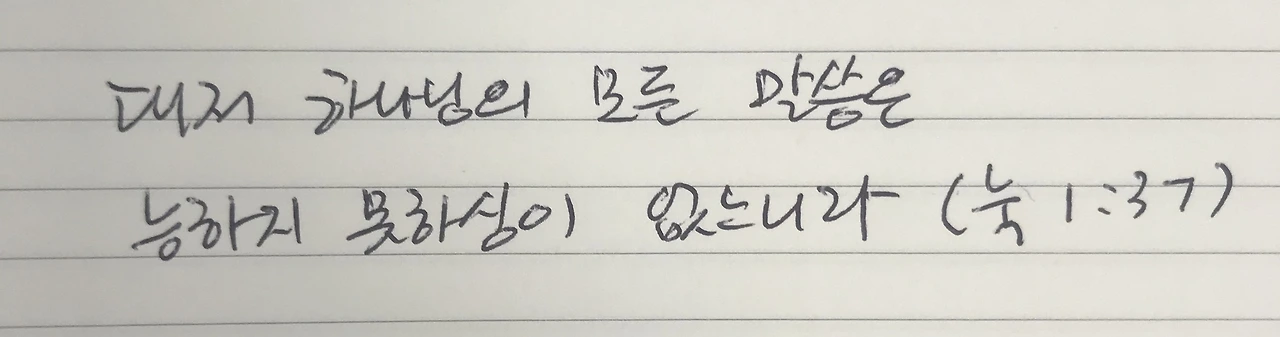 대저 하나님의 모든 말씀은
능하지 못하심이 없느니라 (눅 1:37)